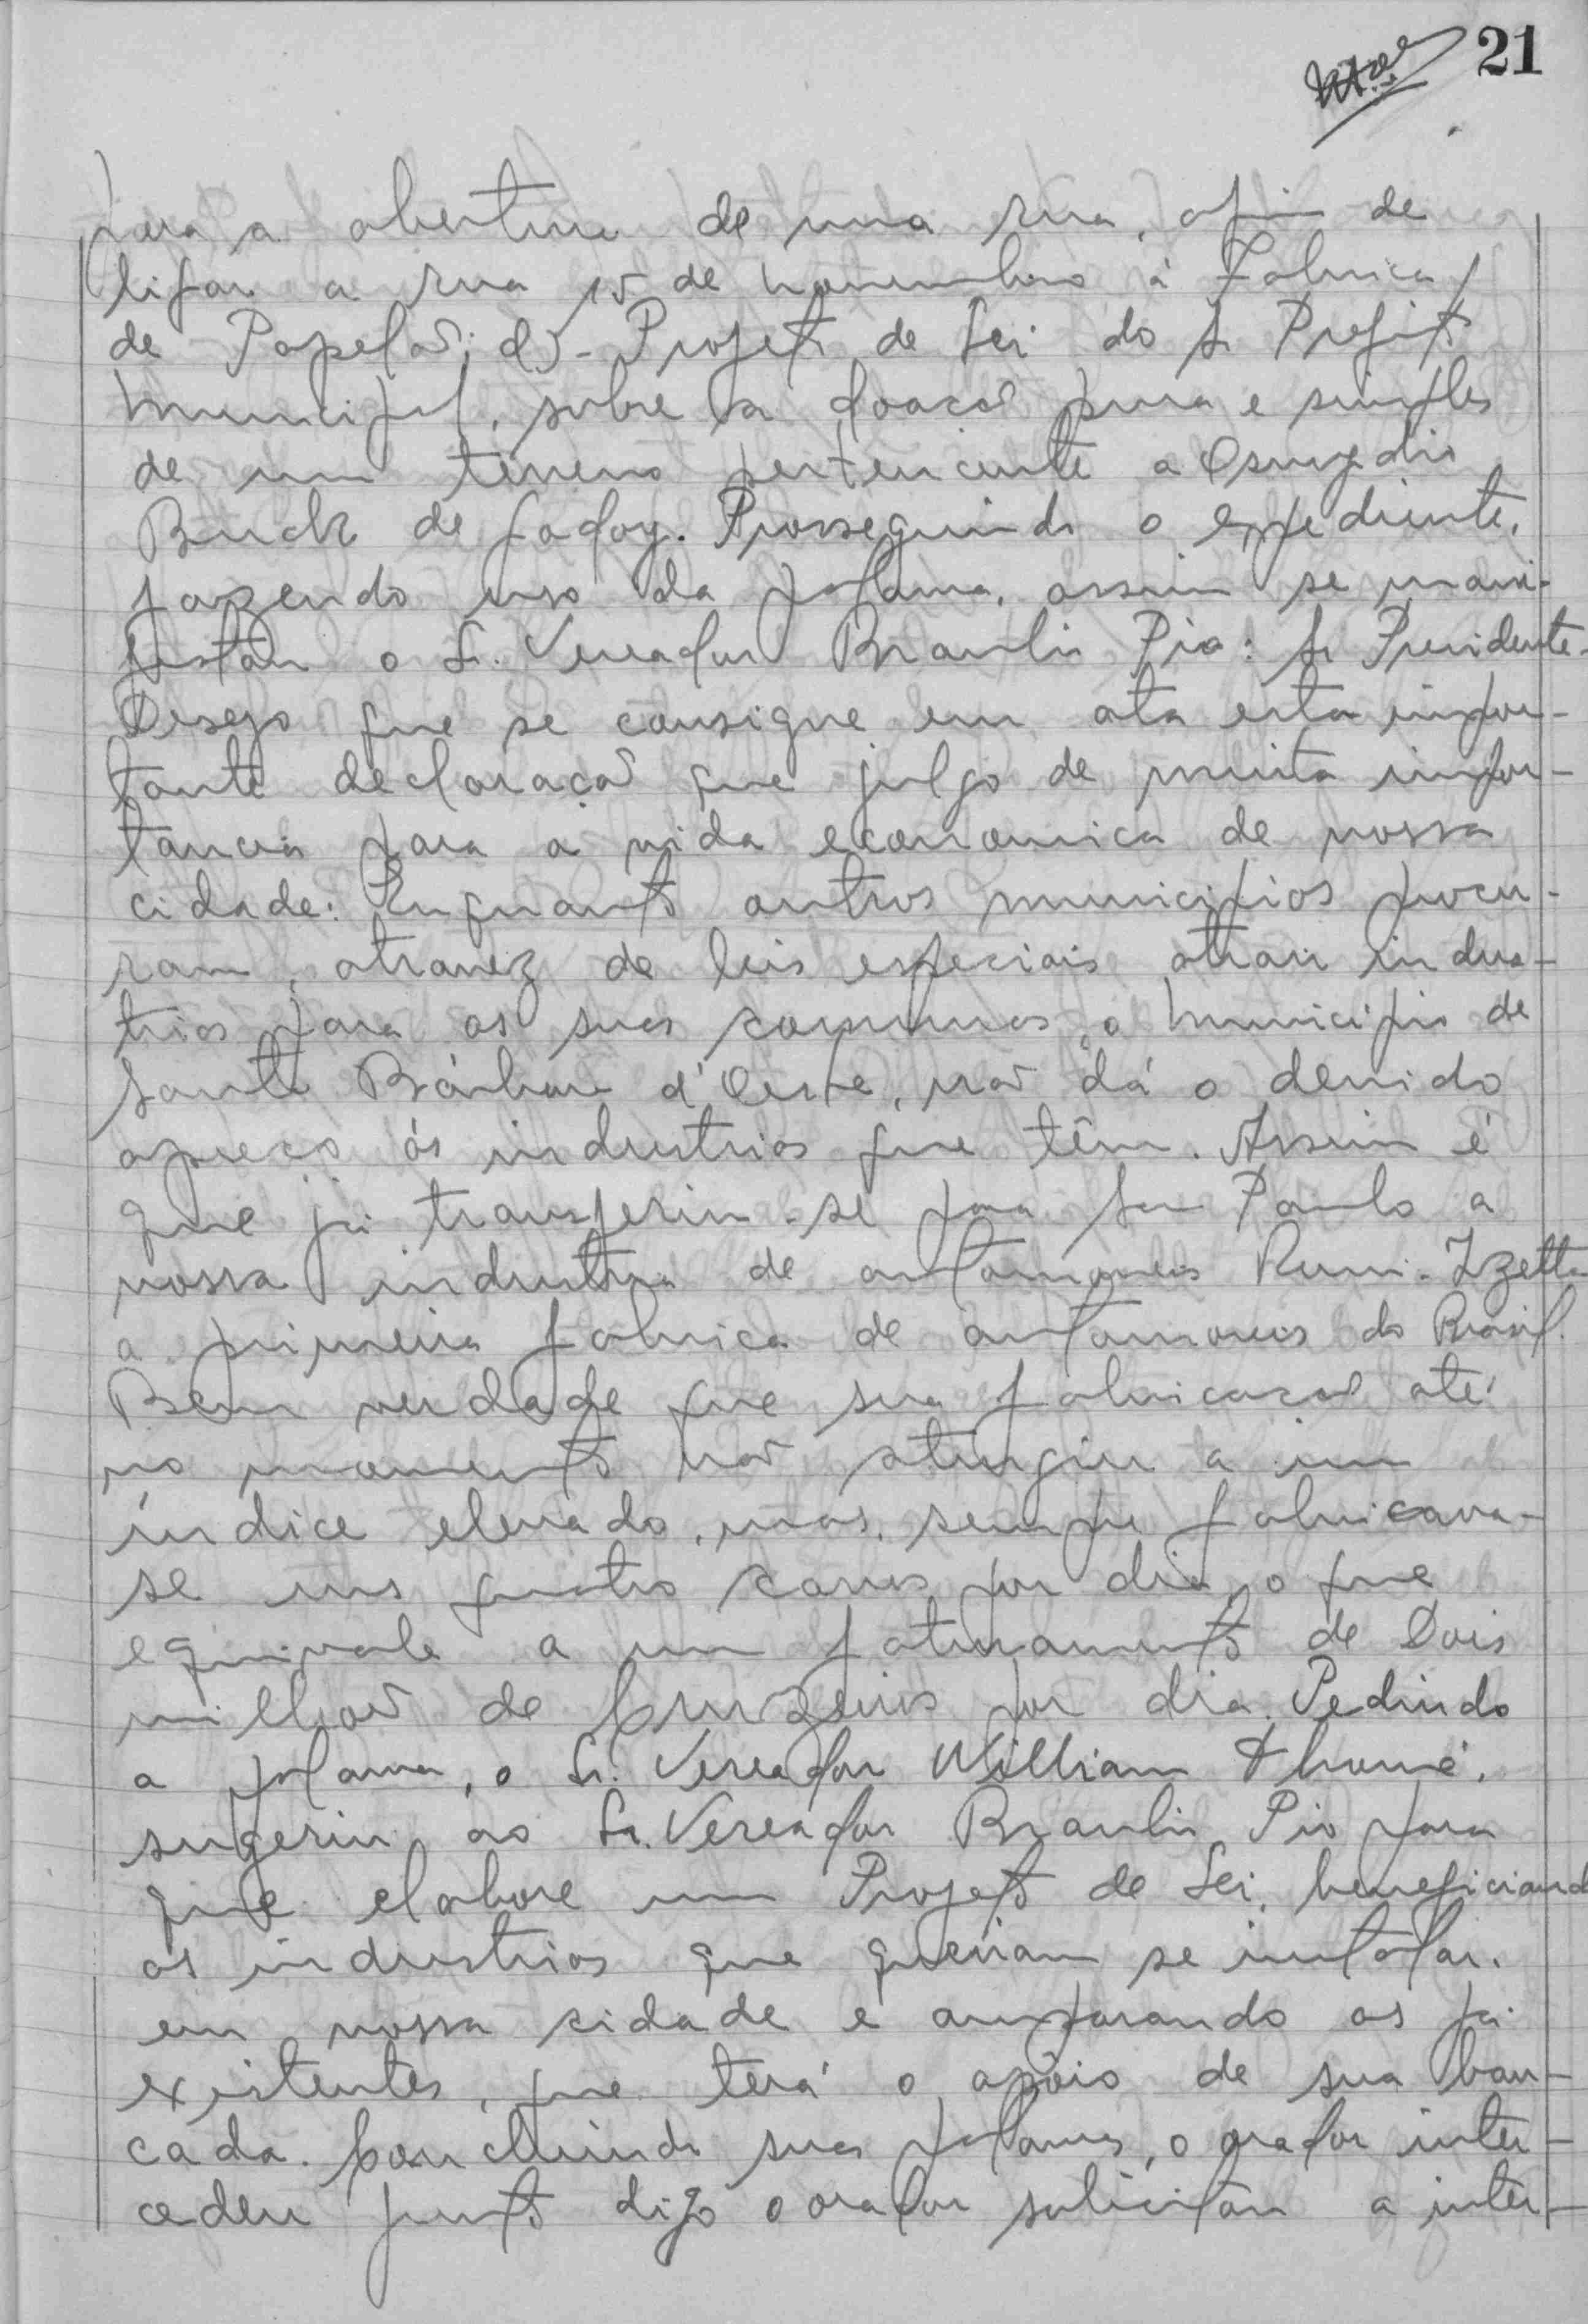 21
para a abertura de uma rua, afim de
ligar a rua 15 de novembro á Fabrica
de Papelão; d) - Projeto de Lei do Sr Prefeito
Municipal, sobre a doacão pura e simples
de um terreno pertencente a Osmydio
Buck de Godoy. Prosseguindo o expediente,
fazendo uso da palavra, assim se mani-
festou o Sr. Vereador Braulio Pio: Sr Presidente.
Desejo que se consigne em ata esta impor-
tante declaração que julgo de muita impor-
tancia para a vida economica de nossa
cidade: Enquanto outros municipios procu-
ram, atravez de leis especiais atrair indus-
trias para as suas comunas, o Municipio de
Santa Bárbara d'Oeste, não dá o devido
apreço ás industrias que têm. Assim é
que já transferiu-se para São Paulo a
nossa industria de automoveis Romi-Izetta
a primeira fabrica de automoveis do Brasil.
Bem verdade que sua fabricacão até
no momento não atingiu a um
índice elevado, mas, sempre fabricava-
se uns quatro carros por dia, o que
equivale a um faturamento de Dois
milhão de Cruzeiros por dia. Pedindo
a palavra, o Sr. Vereador William Thomé,
sugeriu ao Sr. Vereador Braulio Pio para
que elabore um Projeto de Lei, beneficiando
as industrias que queriam se instalar.
em nossa cidade e amparando as já
existentes, que terá o apôio de sua ban-
cada. Concluindo suas palavras, o orador inter-
cedeu junto digo o orador solicitou a inter-